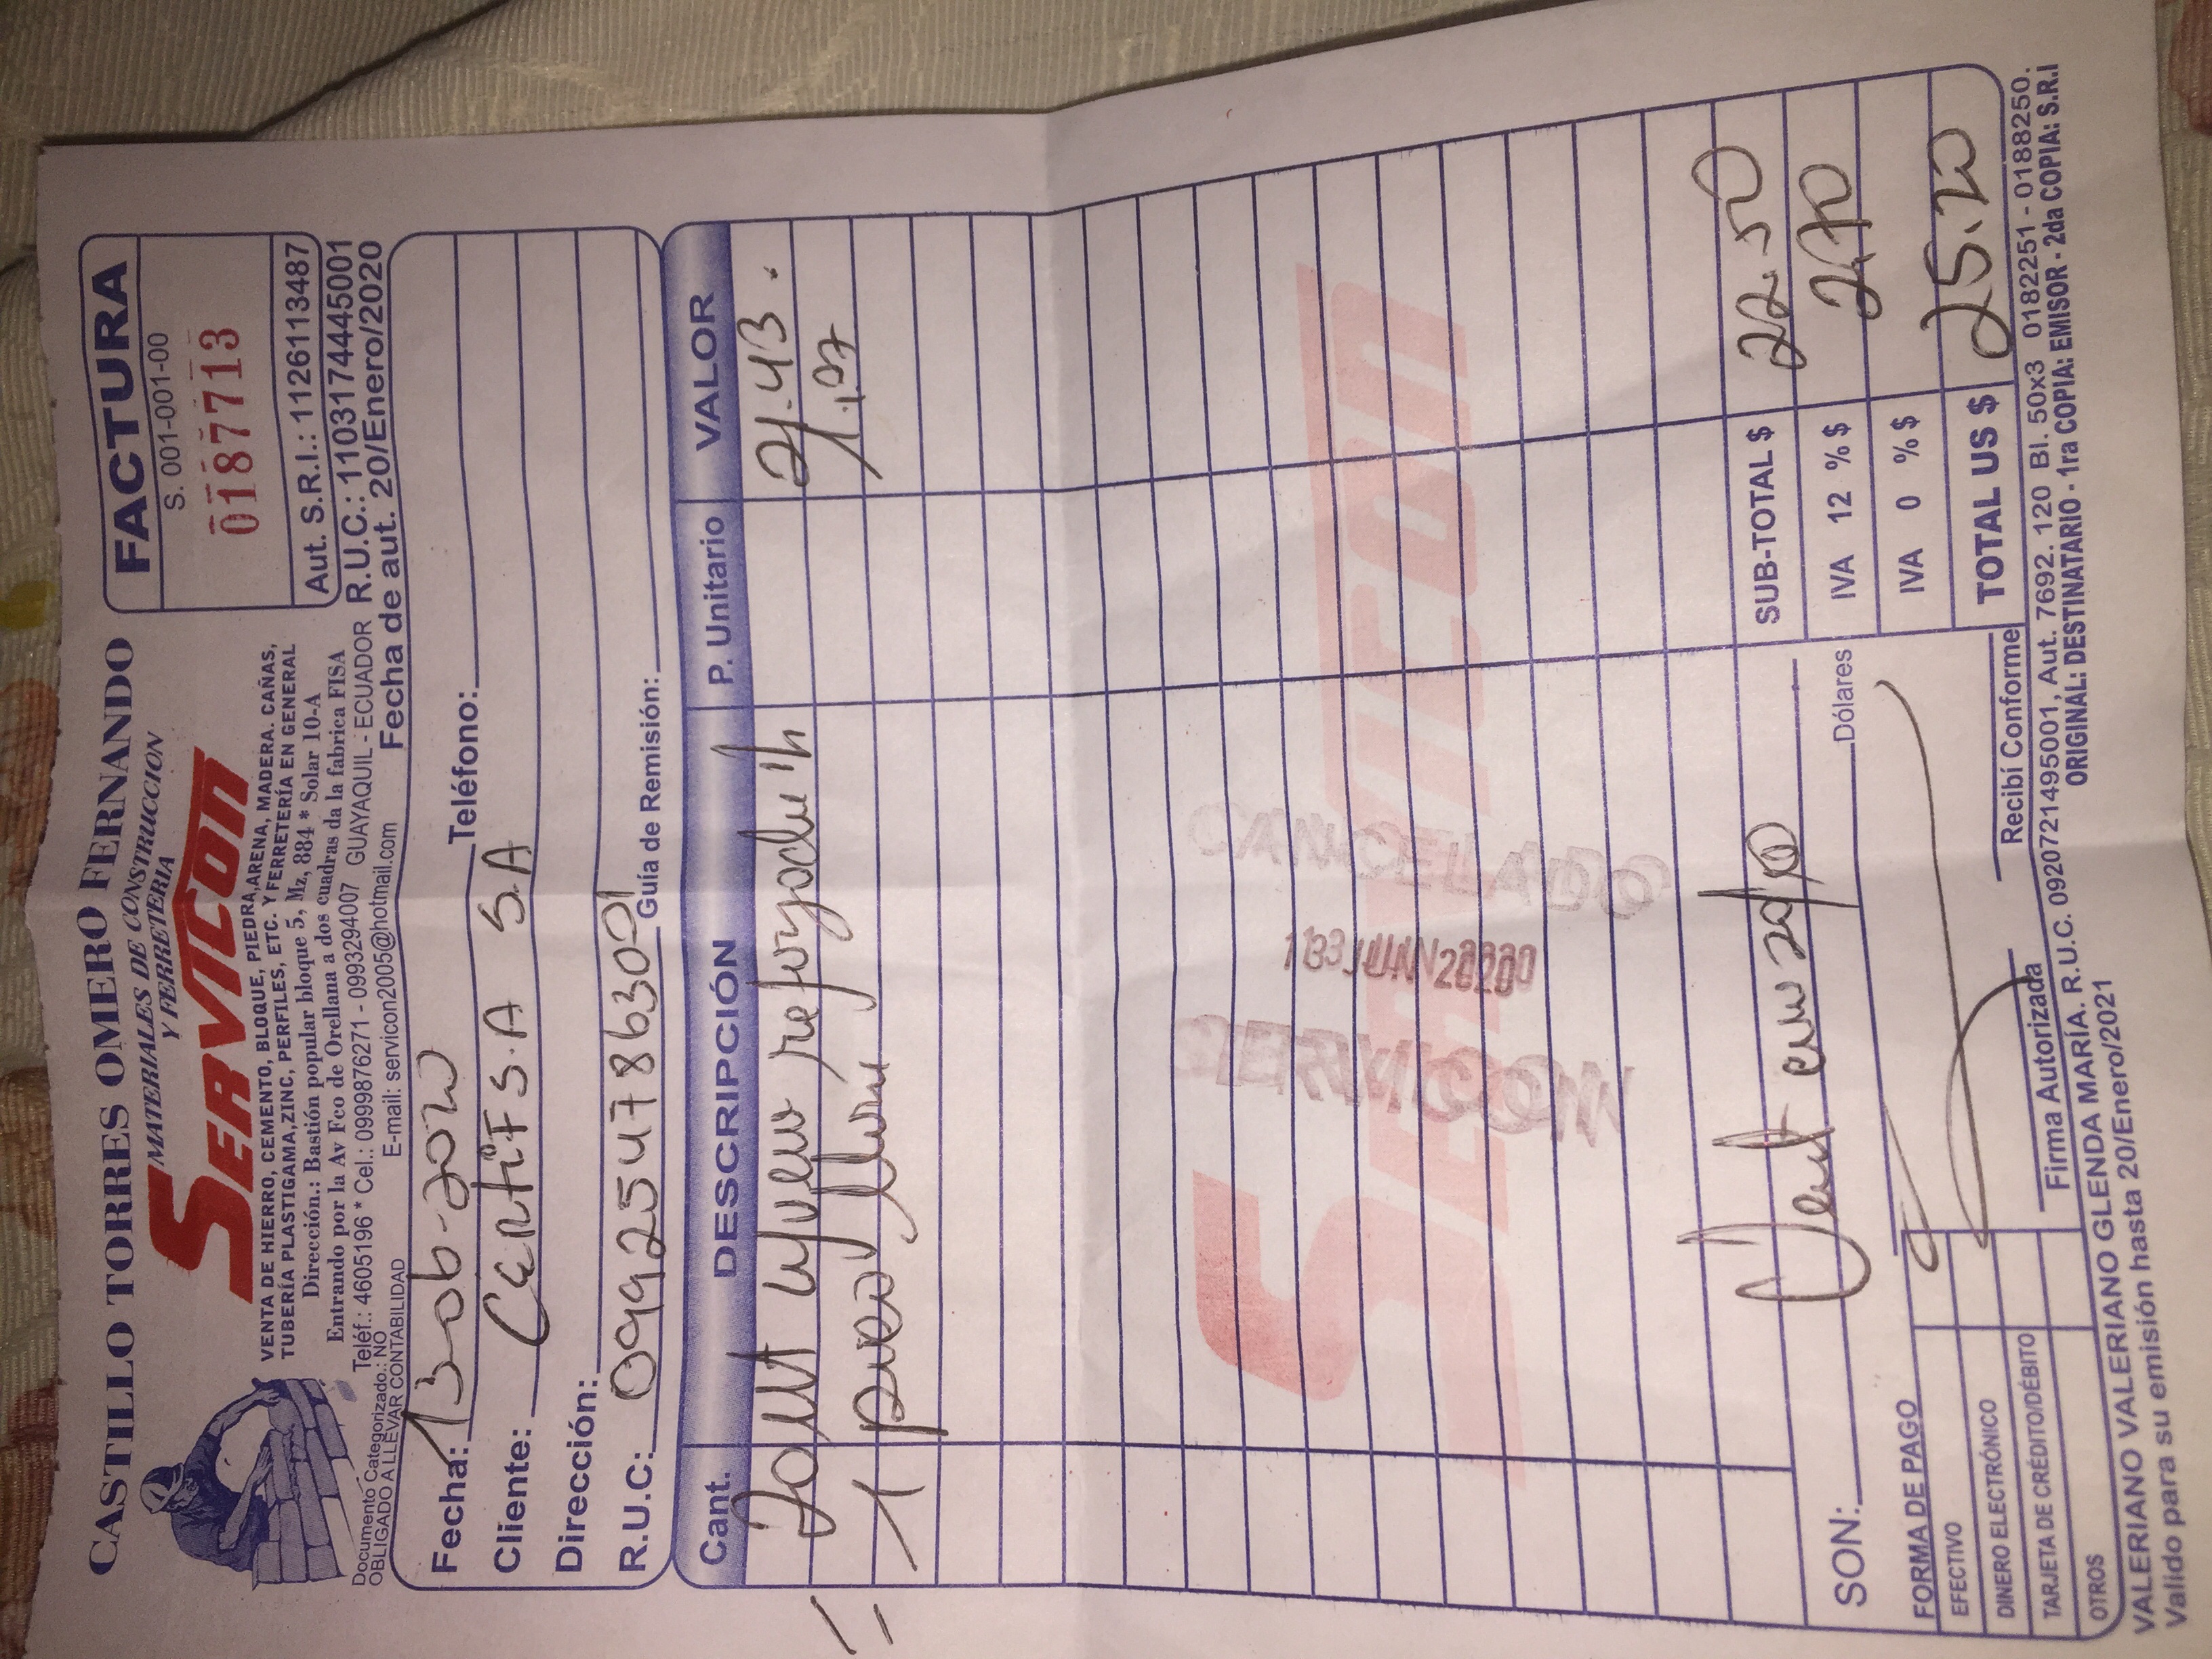 CASTILLO TORRES OMERO FERNANDO
MATERIALES DE CONSTRUCCION
Y FERRETERIA
SERVICON
VENTA DE HIERRO, CEMENTO, BLOQUE, PIEDRA, ARENA, MADERA. CAÑAS,
TUBERÍA PLASTIGAMA, ZINC, PERFILES, ETC. Y FERRETERÍA EN GENERAL
Dirección.: Bastión popular bloque 5, Mz, 884 * Solar 10-A
Entrando por la Av Fco de Orellana a dos cuadras da la fabrica FISA
Teléf.: 4605196 * Cel.: 0999876271 - 0993294007 GUAYAQUIL - ECUADOR
Documento Categorizado.: NO
OBLIGADO A LLEVAR CONTABILIDAD
E-mail: servicon2005@hotmail.com
FACTURA
S. 001-001-00
0187713
Aut. S.R.I.: 1126113487
R.U.C.: 1103174445001
Fecha de aut. 20/Enero/2020
Fecha: 13-06-2020 Teléfono:
Cliente: CERtiFS.A S.A
Dirección:
R.U.C: 0992547863001 Guía de Remisión:
Cant. DESCRIPCIÓN P. Unitario VALOR
21.43.
1 1,07
SERVICON
SERVICON
13 JUN 2020
CANCELADO
SUB-TOTAL $ 22.50
IVA 12 % $ 2,70
IVA 0 % $
TOTAL US $ 25.20
SON: 20/100 Dólares
FORMA DE PAGO
EFECTIVO
DINERO ELECTRÓNICO
TARJETA DE CRÉDITO/DÉBITO
OTROS
Firma Autorizada
Recibí Conforme
VALERIANO VALERIANO GLENDA MARÍA. R.U.C. 0920721495001, Aut. 7692. 120 Bl. 50x3 0182251 - 0188250.
Valido para su emisión hasta 20/Enero/2021
ORIGINAL: DESTINATARIO - 1ra COPIA: EMISOR - 2da COPIA: S.R.I